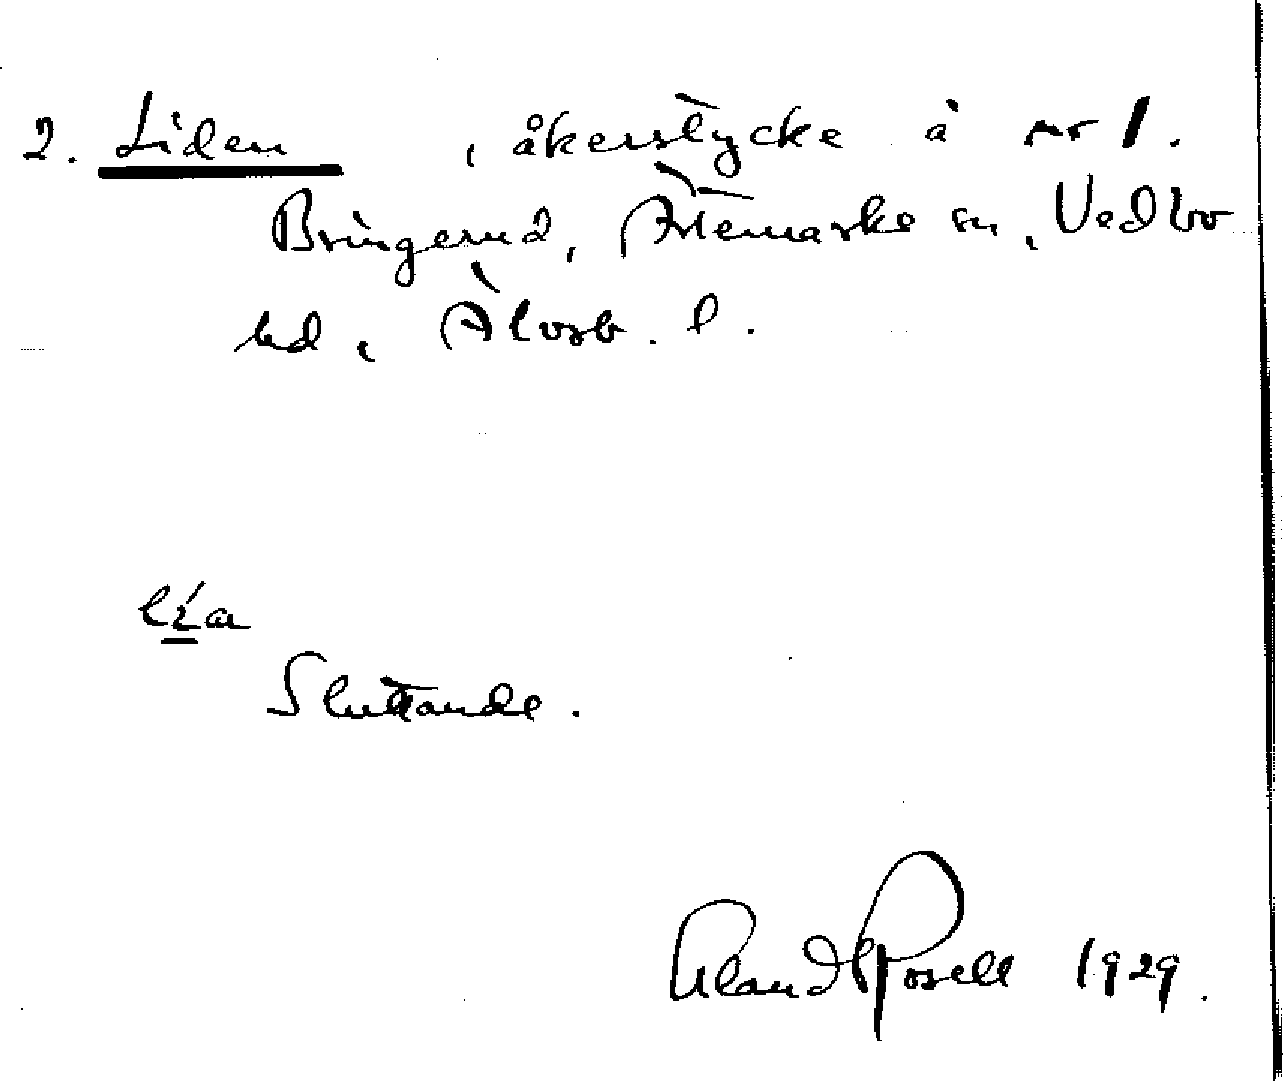 2. Liden , åkerstycke å nr 1.
Bringerud, Ärtemarke sn, Vedbo
hd, Älvsb. l.
lia
Sluttande.
Erland Rosell 1929.